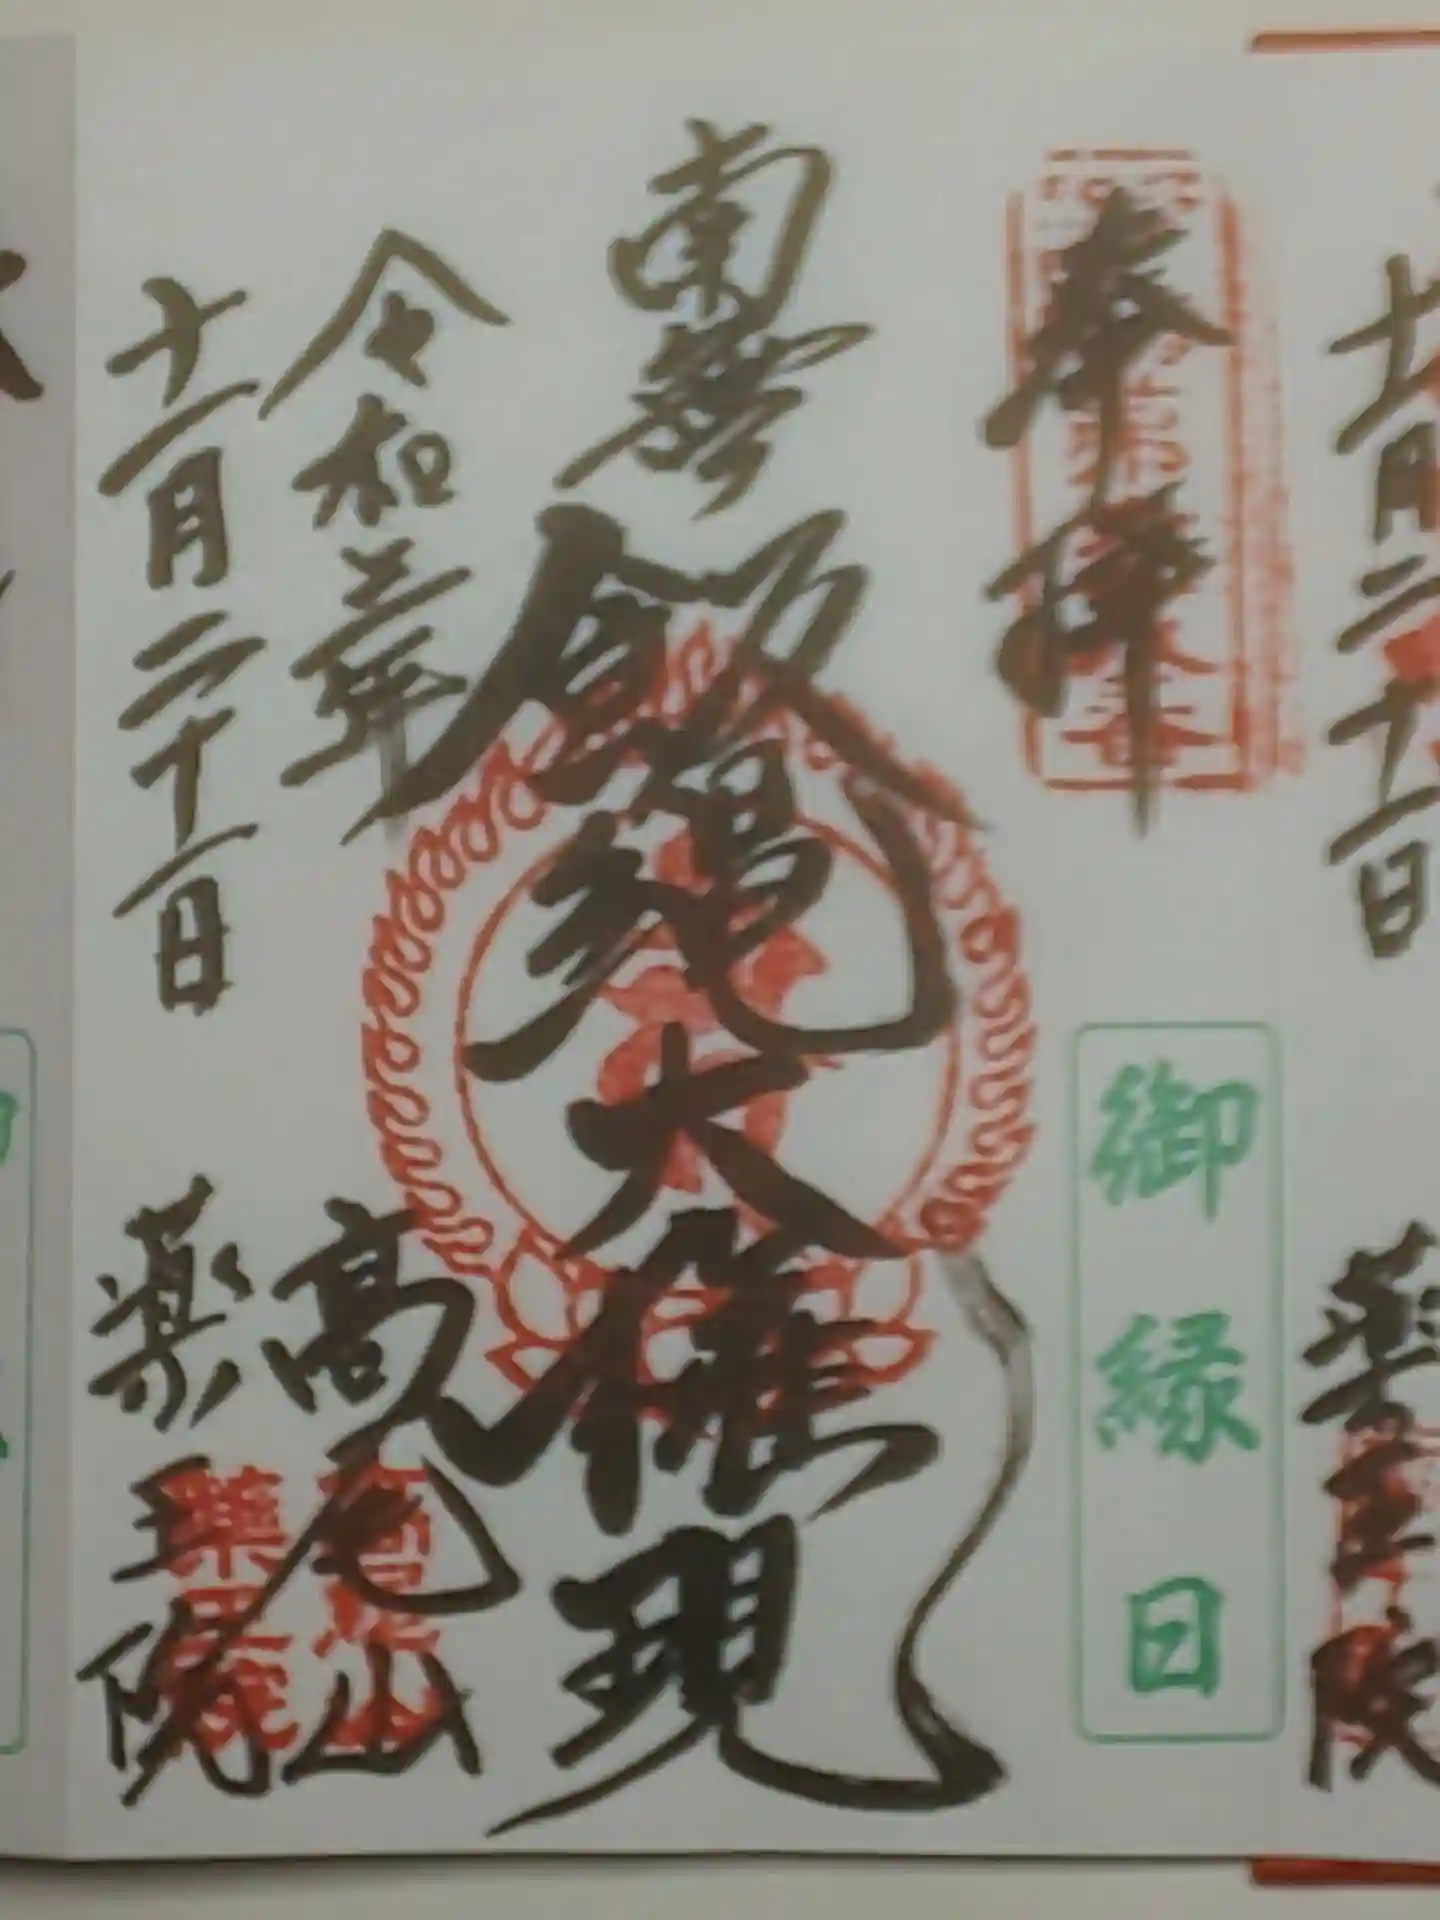 十一月二十一日
薬王院
奉拝
御縁日
南無飯縄大権現
令和三年
高尾山
十一月二十一日
薬王院